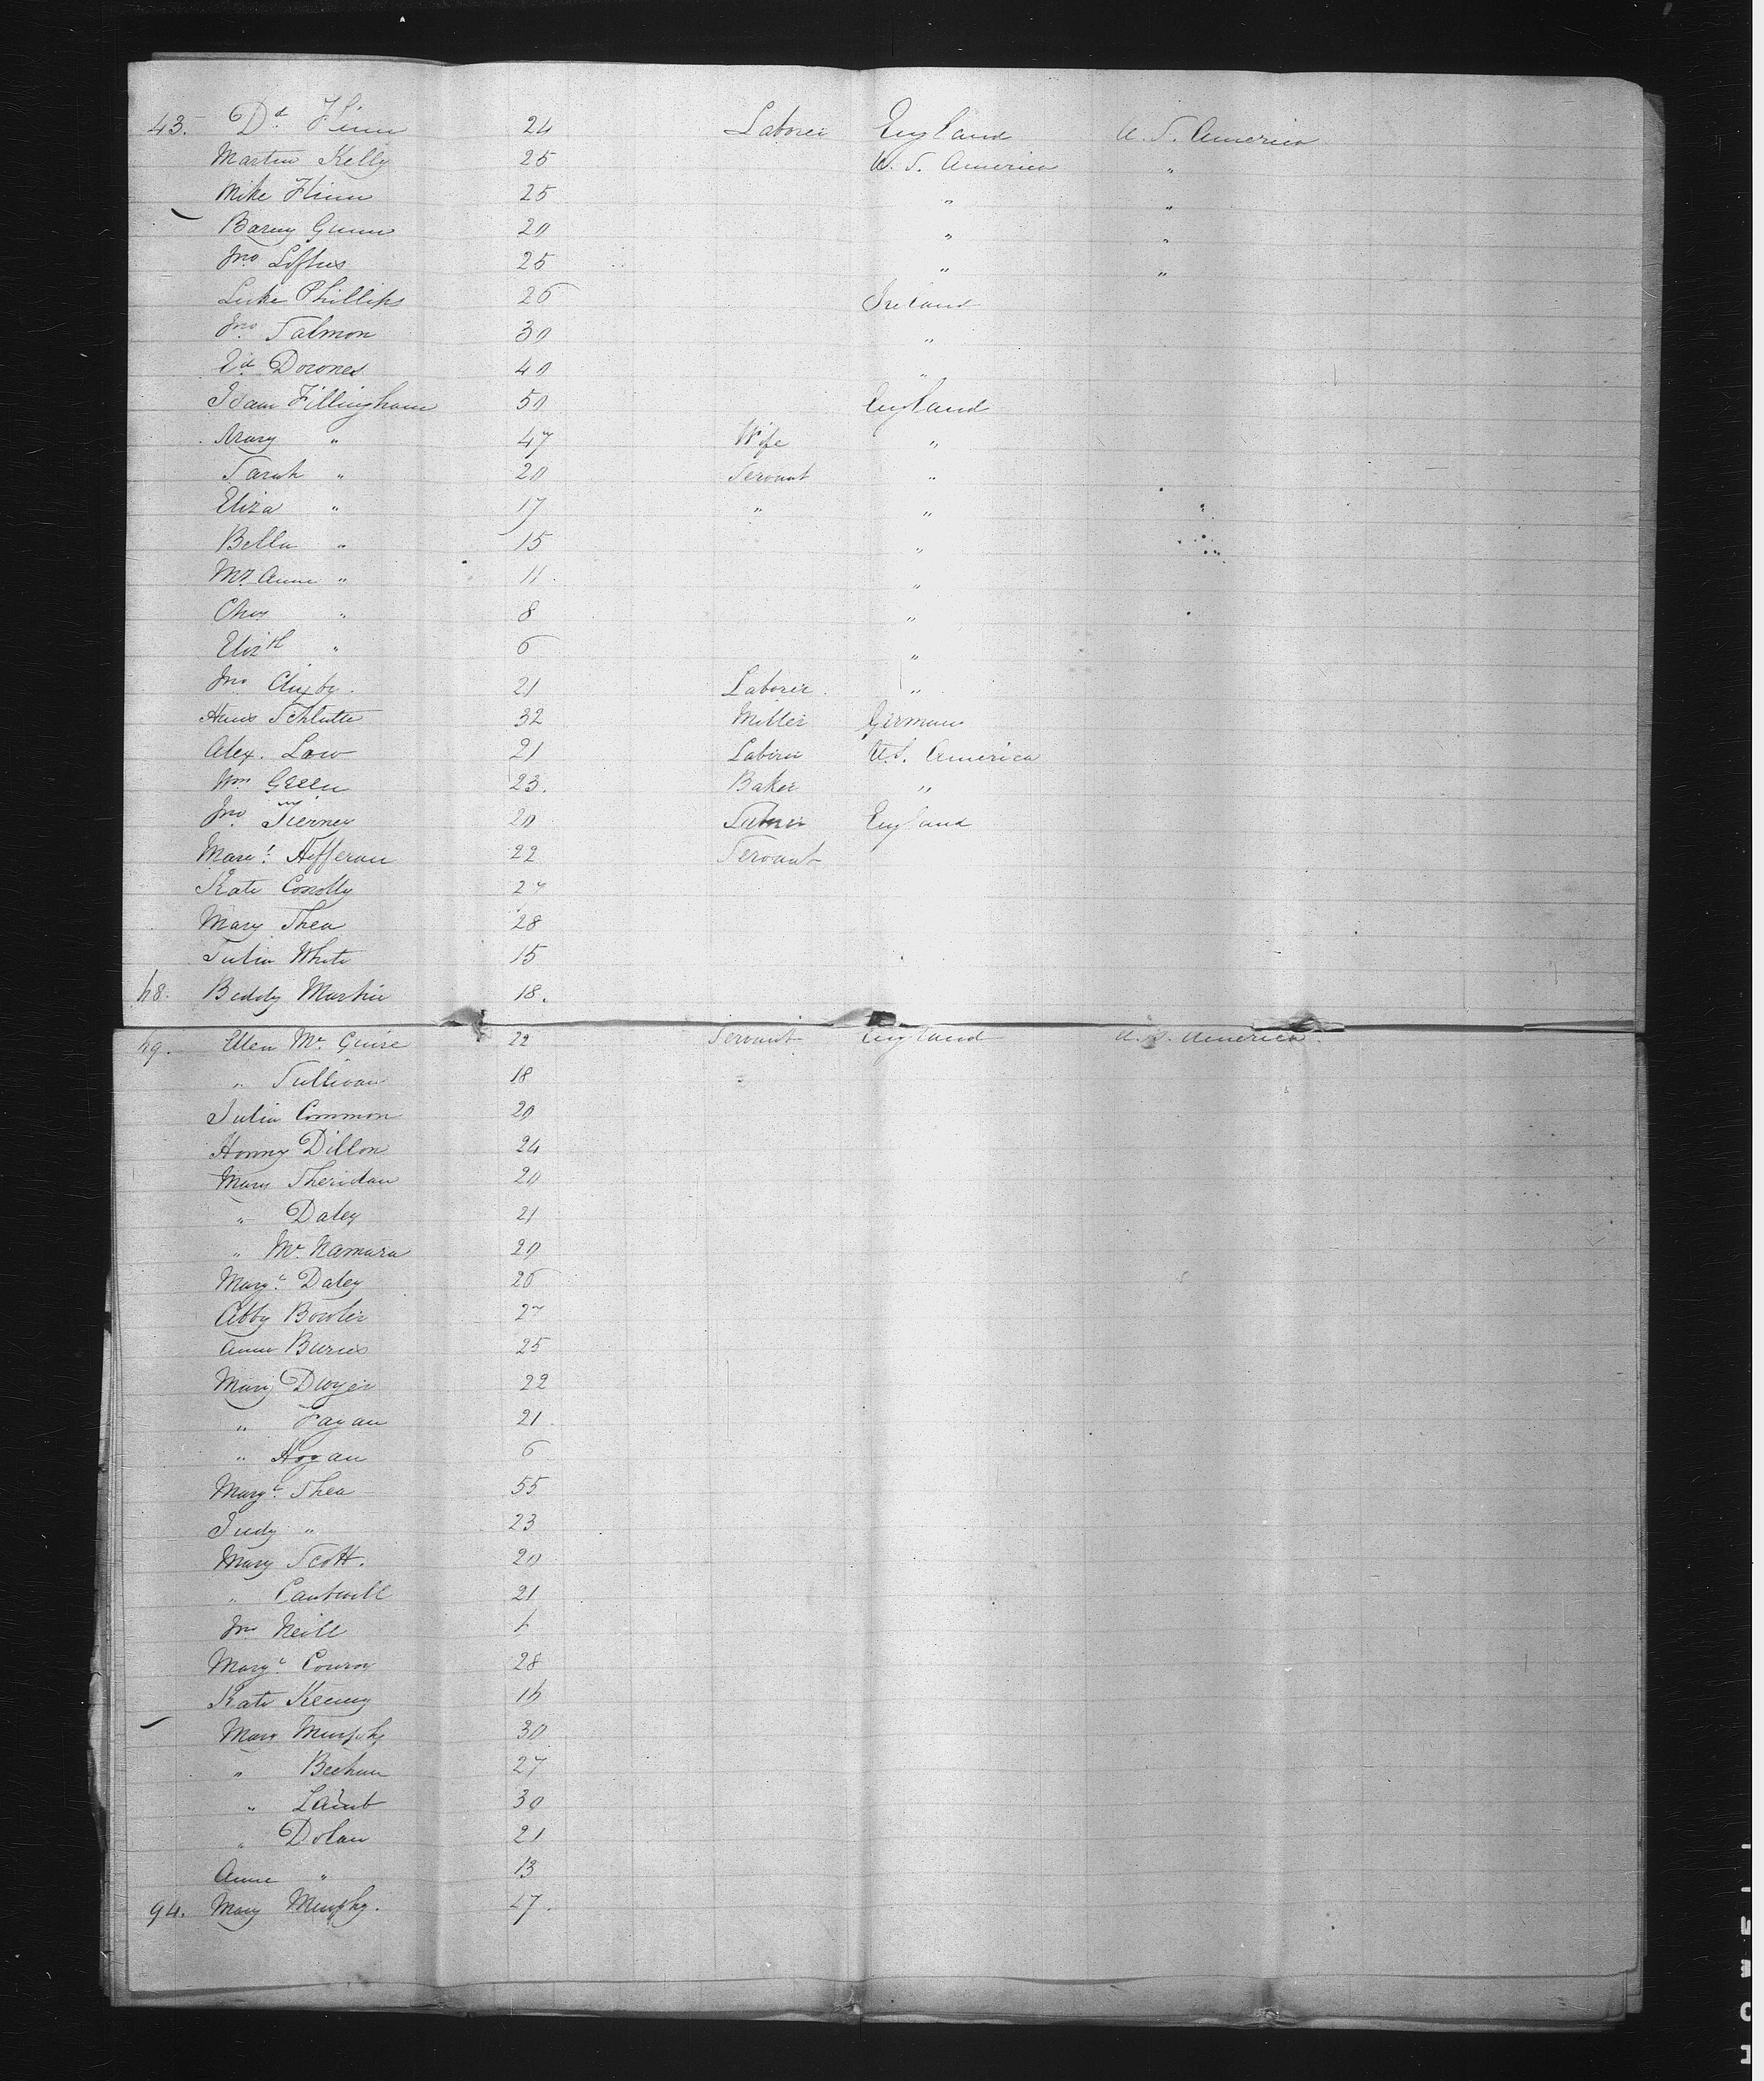 43. Dd Flinn 24 Laborer England U. S. America
Martin Kelly 25 U. S. America "
Mike Flinn 25 " "
Barny Gunn 20 " "
Jno Loftus 25 " "
Luke Phillips 26 Ireland
Jno Salmon 30 "
Ed Downes 40 "
Isaac Fillingham 50 England
Mary " 47 Wife "
Sarah " 20 Servant "
Eliza " 17 " "
Bella " 15 "
My Anne " 11 "
Chas " 8 "
Elizth " 6 "
Jno 21 Laborer "
Hans Schlutte 32 Miller German
Alex. Law 21 Laborer U.S. America
Wm Green 23. Baker "
Jno Tierney 20 England
Mart Hefferan 22 Servant
Kate Conolly 27
Mary Shea 28
Julia White 15
68. Biddy Martin 18.
69. Ellen Mc Guire 22 Servant England U. S. America
" Sullivan 18
Julia Common 20
Honny Dillon 24
Mary Sheridan 20
" Daley 21
" Mc Namara 20
Margt Daley 26
Abby Bowler 27
Anne Burns 25
Mary Dwyer 22
" Fagan 21
" Hogan 6
Margt Shea 55
Judy " 23
Mary Scott. 20
" Cantwell 21
Jno Neill
Margt Conroy 28
Kate Kenny 16
Mary Murphy 30
" Beehan 27
" Lamb 30
" Dolan 21
Anne " 13
94. Mary Murphy. 47.